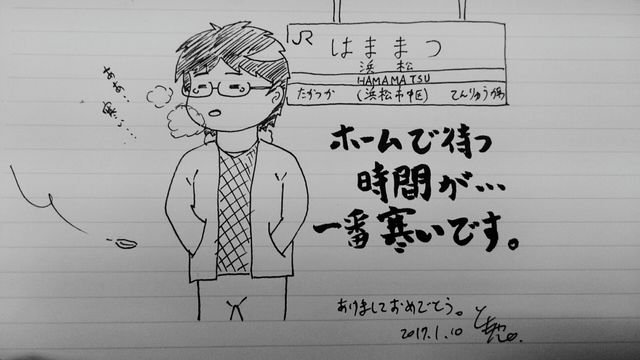 JR
はままつ
浜松
HAMAMATSU
たかつか
(浜松市中区)
てんりゅうがわ
ああ…
寒ぅ…
ホームで待つ
時間が…
一番寒いです。
あけましておめでとう。
2017.1.10